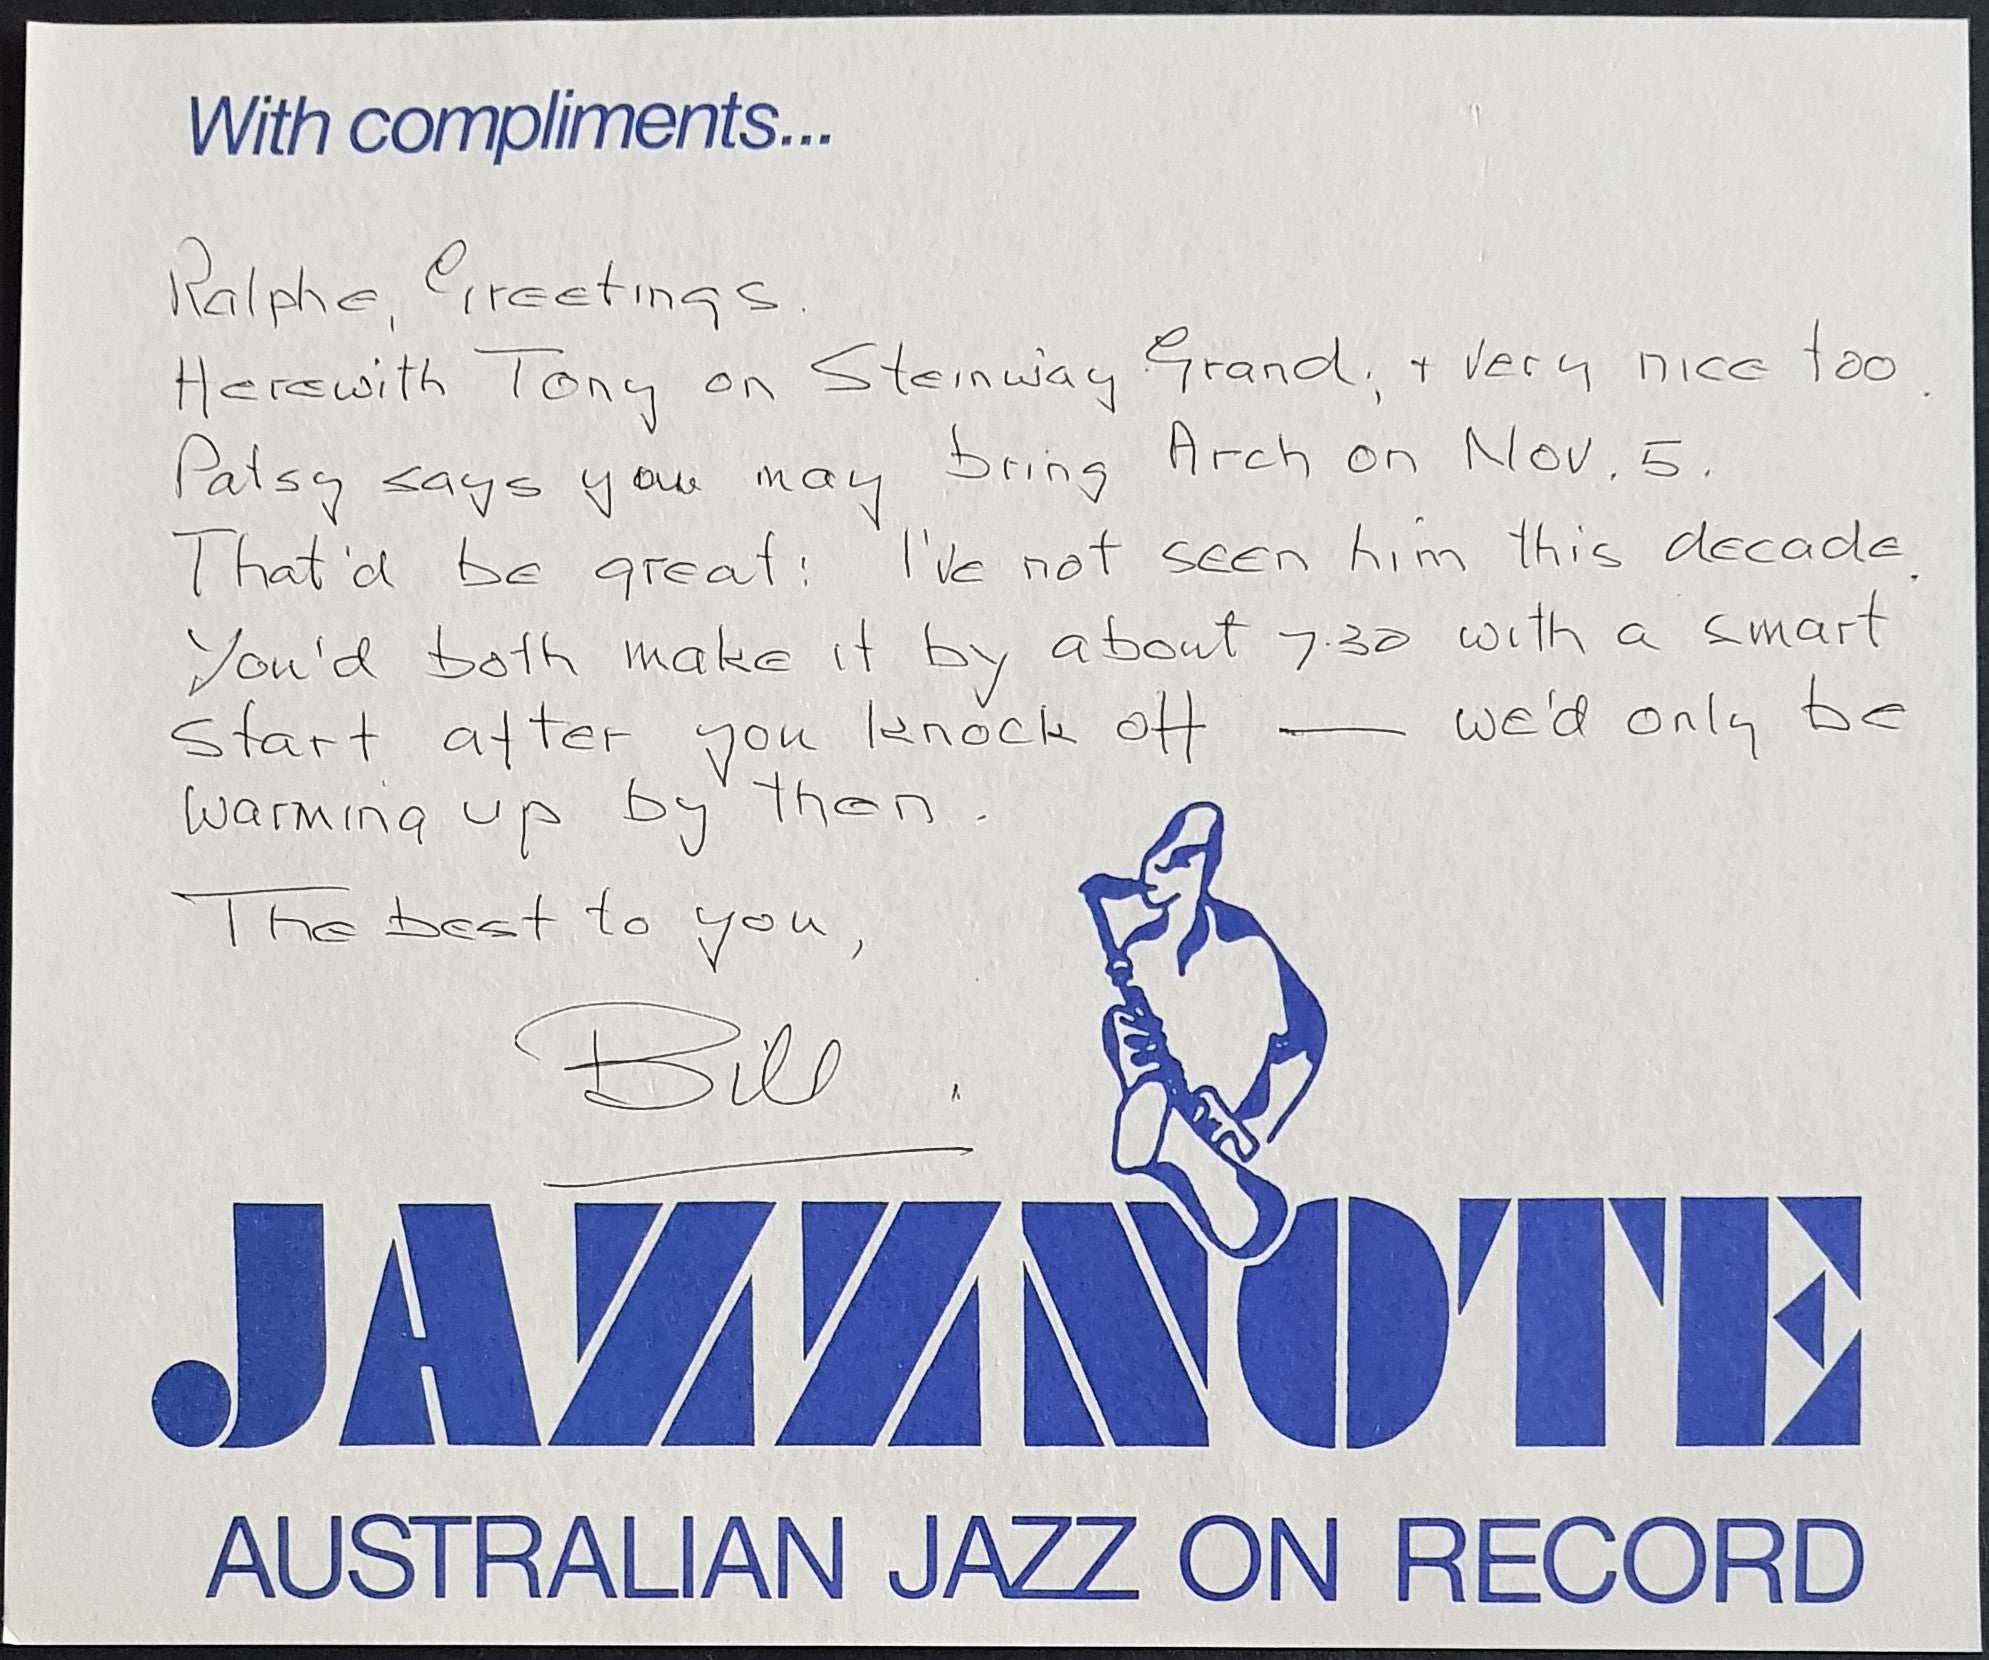 With compliments...
Ralphe, Greetings.
Herewith Tony on Steinway Grand, + very nice too.
Patsy says you may bring Arch on Nov. 5.
That'd be great: I've not seen him this decade.
You'd both make it by about 7.30 with a smart
start after you knock off — we'd only be
warming up by then.
The best to you,
Bill.
JAZZNOTE
AUSTRALIAN JAZZ ON RECORD